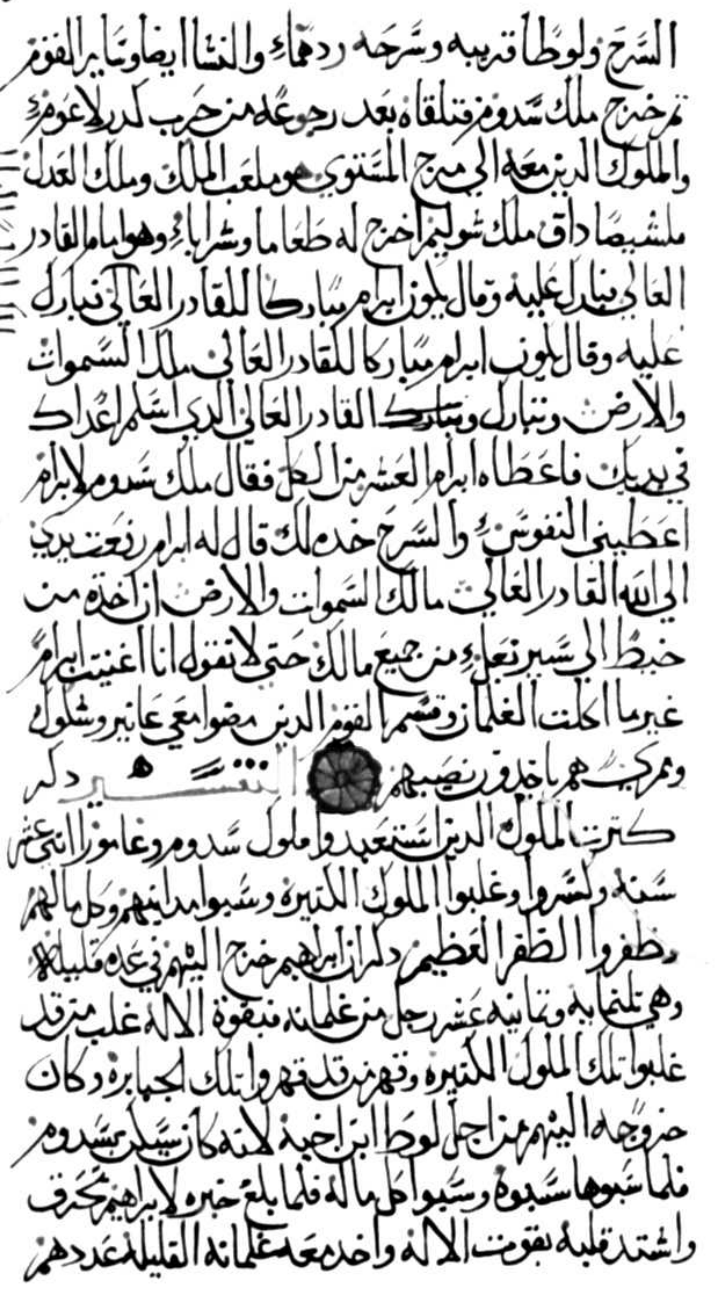 السرح ولوطا قريبه وسرحه ردهما والنسا ايضا وساير القوم
ثم خرج ملك سدوم فتلقاه بعد رجوعه من حرب كدرلاعومر
والملوك الدين معه الي مرج المستوي هو ملعب الملك وملك العدل
ملشيصاداق ملك شوليم اخرج له طعاما وشرابا وهو امام القادر
العالي فبارك عليه وقال يكون ابرام مباركا للقادر العالي فبارك
عليه وقال يكون ابرام مباركا للقادر العالي ملك السموات
والارض وتبارك وتبارك القادر العالي الدي اسلم اعداك
في يديك فاعطاه ابرام العشر من الكل فقال ملك سدوم لابرام
اعطيني النفوس والسرح خده لك قال له ابرام رفعت يدي
الي الله القادر العالي مالك السموات والارض ان اخده من
خيط الي سير نعل من جميع مالك حتي لا تقول انا اغنيت ابرام
غير ما اكلت الغلمان وقسم القوم الدين مضوا معي عانير وشلوك
وممري هم ياخدون نصيبهم التفسير دكر
كترت الملوك الدين استعبدوا ملوك سدوم وغامورا اتني عشر
سنه وكسروا وغلبوا الملوك الكتيره وسبوا مداينهم وكل مالهم
وظفروا الظفر العظيم دكر ان ابراهيم خرج اليهم في عده قليله
وهي تلتمايه وتمانيه عشر رجل من غلمانه فبقوة الاله غلب من قد
غلبوا تلك الملوك الكتيره وقهر من قد قهروا تلك الجبابره وكان
خروجه اليهم من اجل لوط ابن اخيه لانه كان يسكن بسدوم
فلما سبوها سبوه وسبوا كل ماله فلما بلغ خبره لابراهيم تحرق
واشتد قلبه بقوت الاله واخد معه غلمانه القليله عددهم